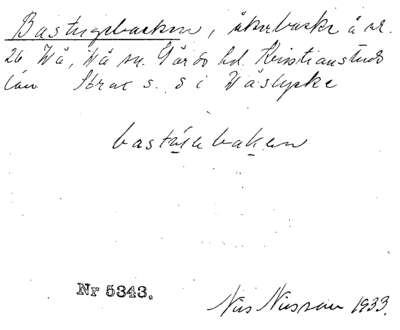 Bastugebacken, åkerbacke å nr.
26 Vä, Vä sn. Gärds hd. Kristianstads
län Strax s. s i Väslycke
bastúgebaken
Nr 5343.
Nils Nilsson 1933.